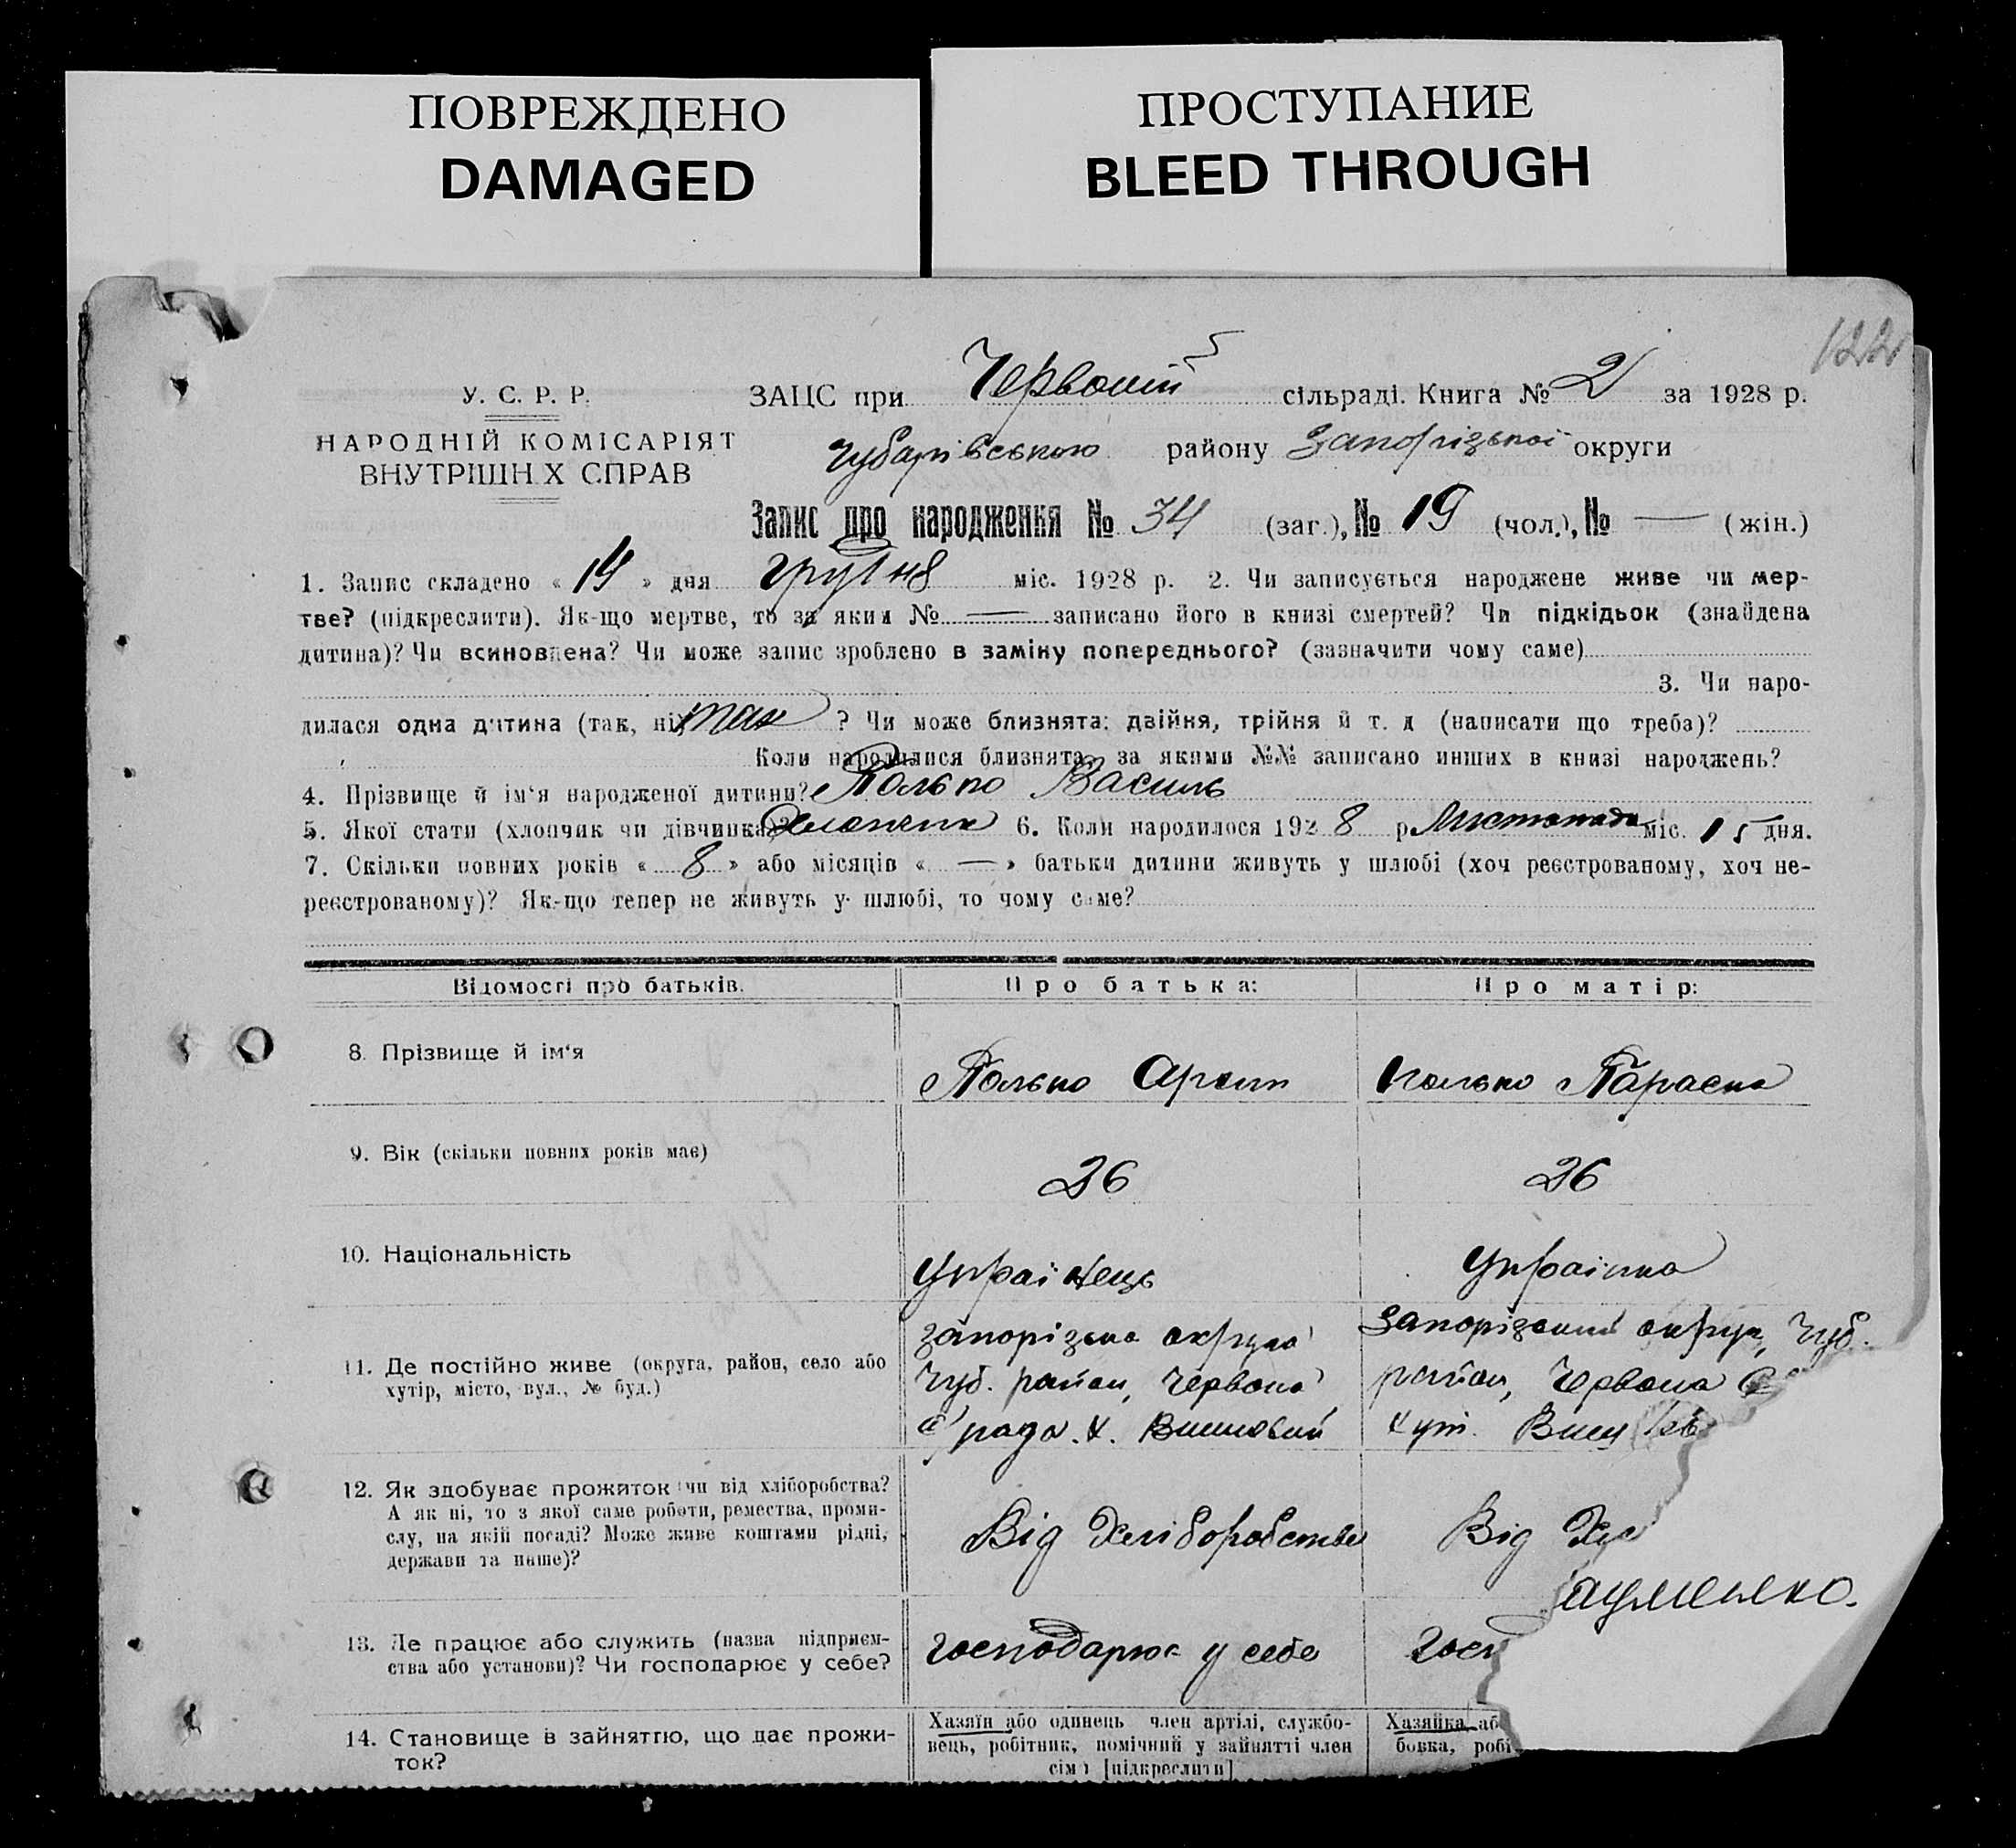 ПОВРЕЖДЕНО
DAMAGED
ПРОСТУПАНИЕ
BLEED THROUGH
122
У. С. Р. Р.
НАРОДНІЙ КОМІСАРІЯТ
ВНУТРІШН Х СПРАВ
ЗАЦС при Червоній сільраді. Книга № 2 за 1928 р.
Чубарівського району Запорізької округи
Запис про народження № 34 (заг.), № 19 (чол.), № — (жін.)
1. Запис складено « 14 » дня грудня міс. 1928 р. 2. Чи записується народжене живе чи мер-
тве? (підкреслити). Як-що мертве, то за яким № — записано його в книзі смертей? Чи підкідьок (знайдена
дитина)? Чи всиновлена? Чи може запис зроблено в заміну попереднього? (зазначити чому саме)
3. Чи наро-
дилася одна дитина (так, ні) так ? Чи може близнята: двійня, трійня й т. д (написати що треба)?
Коли народилися близнята, за якими №№ записано инших в книзі народжень?
4. Прізвище й ім'я народженої дитини? Полько Василь
5. Якої стати (хлопчик чи дівчинка)? Хлопчик 6. Коли народилося 192 8 р. Листопада міс. 15 дня.
7. Скільки повних років « 8 » або місяців « — » батьки дитини живуть у шлюбі (хоч реєстрованому, хоч не-
реєстрованому)? Як-що тепер не живуть у шлюбі, то чому саме?
Відомості про батьків. Про батька: Про матір:
8. Прізвище й ім'я Полько Архип Полько Параска
9. Вік (скільки повних років має) 26 26
10. Національність Українець Українка
11. Де постійно живе (округа, район, село або
хутір, місто, вул., № буд.)
Запорізька округа
Чуб. район, Червона
с/рада. х. Вишневий
Запорізький округ, Чуб.
район, Червона
хут.
12. Як здобуває прожиток чи від хліборобства?
А як ні, то з якої саме роботи, ремества, проми-
слу, на якій посаді? Може живе коштами рідні,
держави та инше)?
Від Хліборобства Від
ауменко.
13. Де працює або служить (назва підприєм-
ства або установи)? Чи господарює у себе?
господарює у себе Госп
14. Становище в зайняттю, що дає прожи-
ток?
Хазяїн або одинець член артілі, службо-
вець, робітник, помічний у зайнятті член
сім ї [підкреслити]
Хазяйка аб
бовка, робі